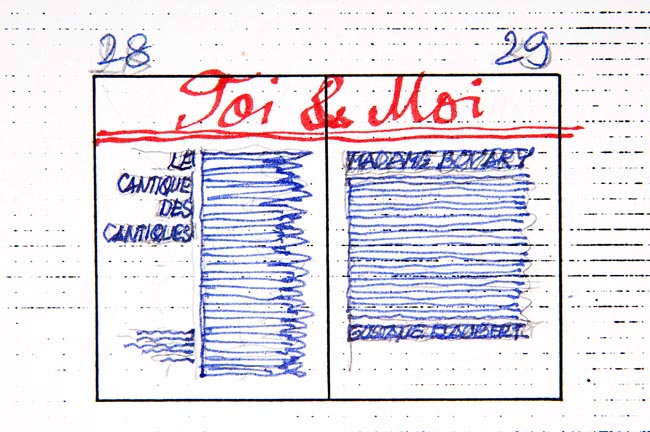 28 29
Toi & Moi
LE
CANTIQUE
DES
CANTIQUES
MADAME BOVARY
GUSTAVE FLAUBERT